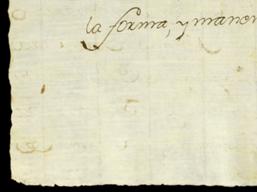 la forma, y maner